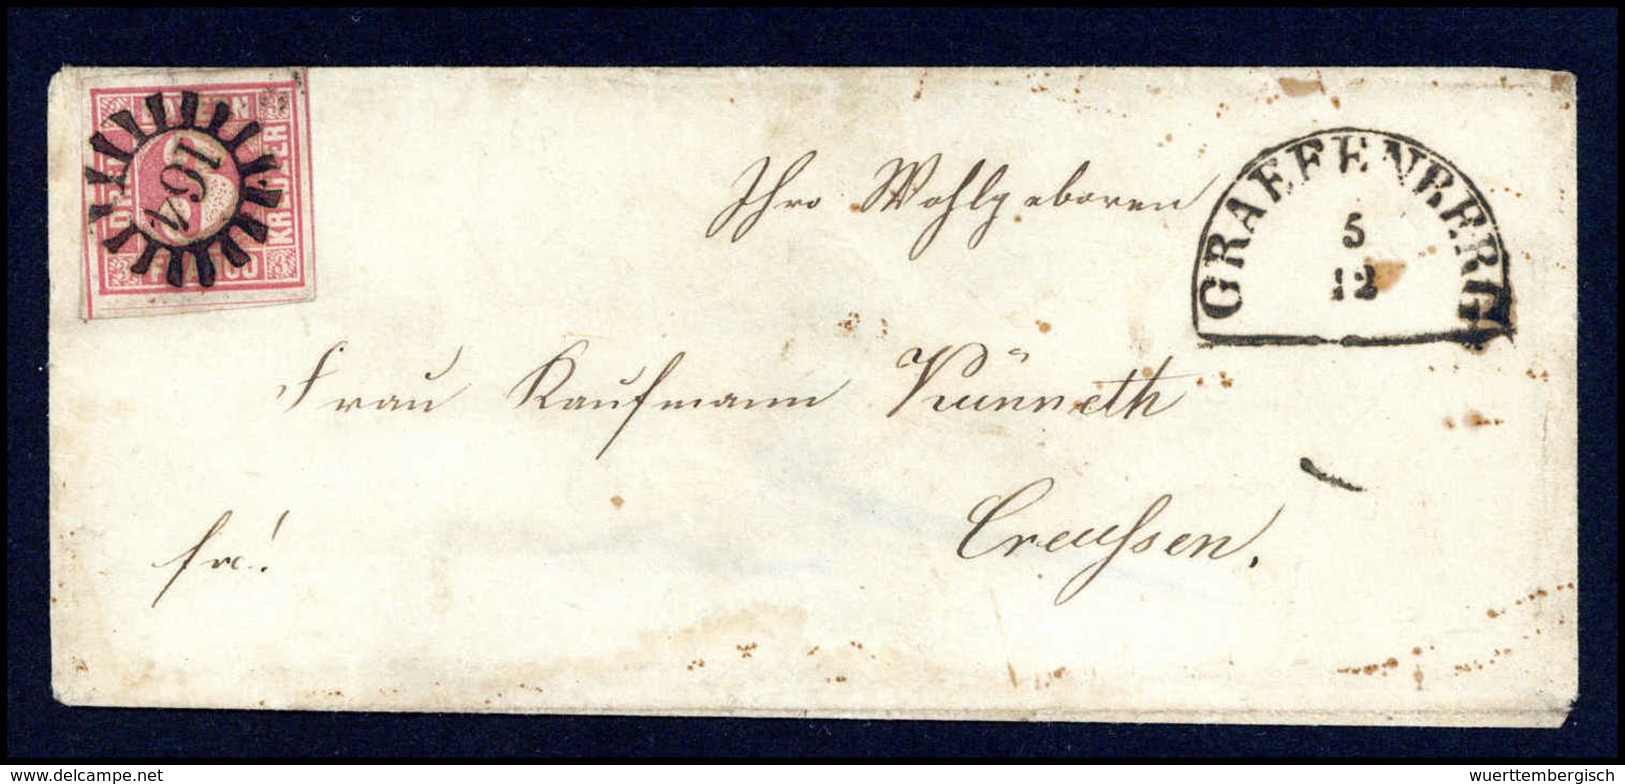 BAYERN
DREI
KREUZER
FRANCO
164
GRAEFENBERG
5
12
Ihro Wohlgeboren
Frau Kaufmann Künneth
Creußen.
fr!
www.delcampe.net
wuerttembergisch